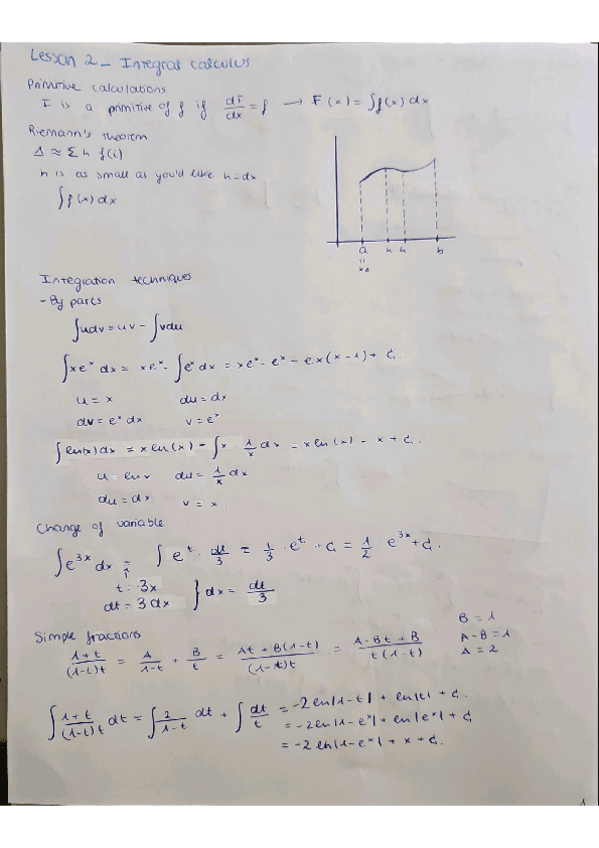 Lesson 2 - Integral calculus
Primitive calculations
F is a primitive of f if dF/dx = f → F(x) = ∫f(x) dx
Riemann's theorem
Δ ≈ Σ h f(i)
h is as small as you'd like h=dx
∫f(x) dx
a h h b
Integration techniques
- By parts
∫udv = uv - ∫vdu
∫xe^x dx = xe^x - ∫e^x dx = xe^x - e^x - e^x(x-1) + C.
u = x du = dx
dv = e^x dx v = e^x
∫ln(x)dx = x ln(x) - ∫x · 1/x dx = x ln(x) - x + C.
u = ln x du = 1/x dx
du = dx v = x
Change of variable
∫e^3x dx = ∫e^t · dt/3 = 1/3 · e^t + C = 1/2 e^3x + C.
t = 3x
dt = 3dx } dx = dt/3
Simple fractions
1+t/(1-t)t = A/1-t + B/t = At + B(1-t)/(1-t)t = A-Bt+B/t(1-t)
B = 1
A-B = 1
A = 2
∫1+t/(1-t)t dt = ∫2/1-t dt + ∫dt/t = -2ln|1-t| + ln|t| + C.
= -2ln|1-e^x| + ln|e^x| + C
= -2 ln|1-e^x| + x + C.
1